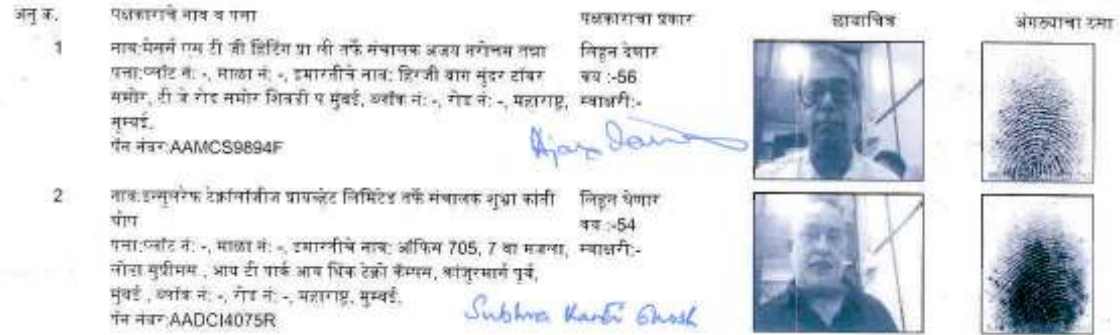 अनु क्र. पक्षकाराचे नाव व पत्ता पक्षकाराचा प्रकार छायाचित्र अंगठ्याचा ठसा
1 नाव:मेसर्स एम टी जी हिटिंग प्रा ली तर्फे संचालक अजय नरोत्तम तन्ना लिहून देणार
पत्ता:प्लॉट नं: -, माळा नं: -, इमारतीचे नाव: हिरजी बाग सुंदर टॉवर वय :-56
समोर, टी जे रोड समोर शिवडी प मुंबई, ब्लॉक नं: -, रोड नं: -, महाराष्ट्र, स्वाक्षरी:-
मुम्बई.
पॅन नंबर:AAMCS9894F
Ajay
2 नाव:इन्सुलरेफ टेक्नॉलॉजीज प्रायव्हेट लिमिटेड तर्फे संचालक शुभ्रा कांती लिहून घेणार
घोष वय :-54
पत्ता:प्लॉट नं: -, माळा नं: -, इमारतीचे नाव: ऑफिस 705, 7 वा मजला, स्वाक्षरी:-
लोढा सुप्रीमस , आय टी पार्क आय थिंक टेक्नो कॅम्पस, कांजुरमार्ग पूर्व,
मुंबई , ब्लॉक नं: -, रोड नं: -, महाराष्ट्र, मुम्बई.
पॅन नंबर:AADCI4075R
Subhra Kanti Ghosh